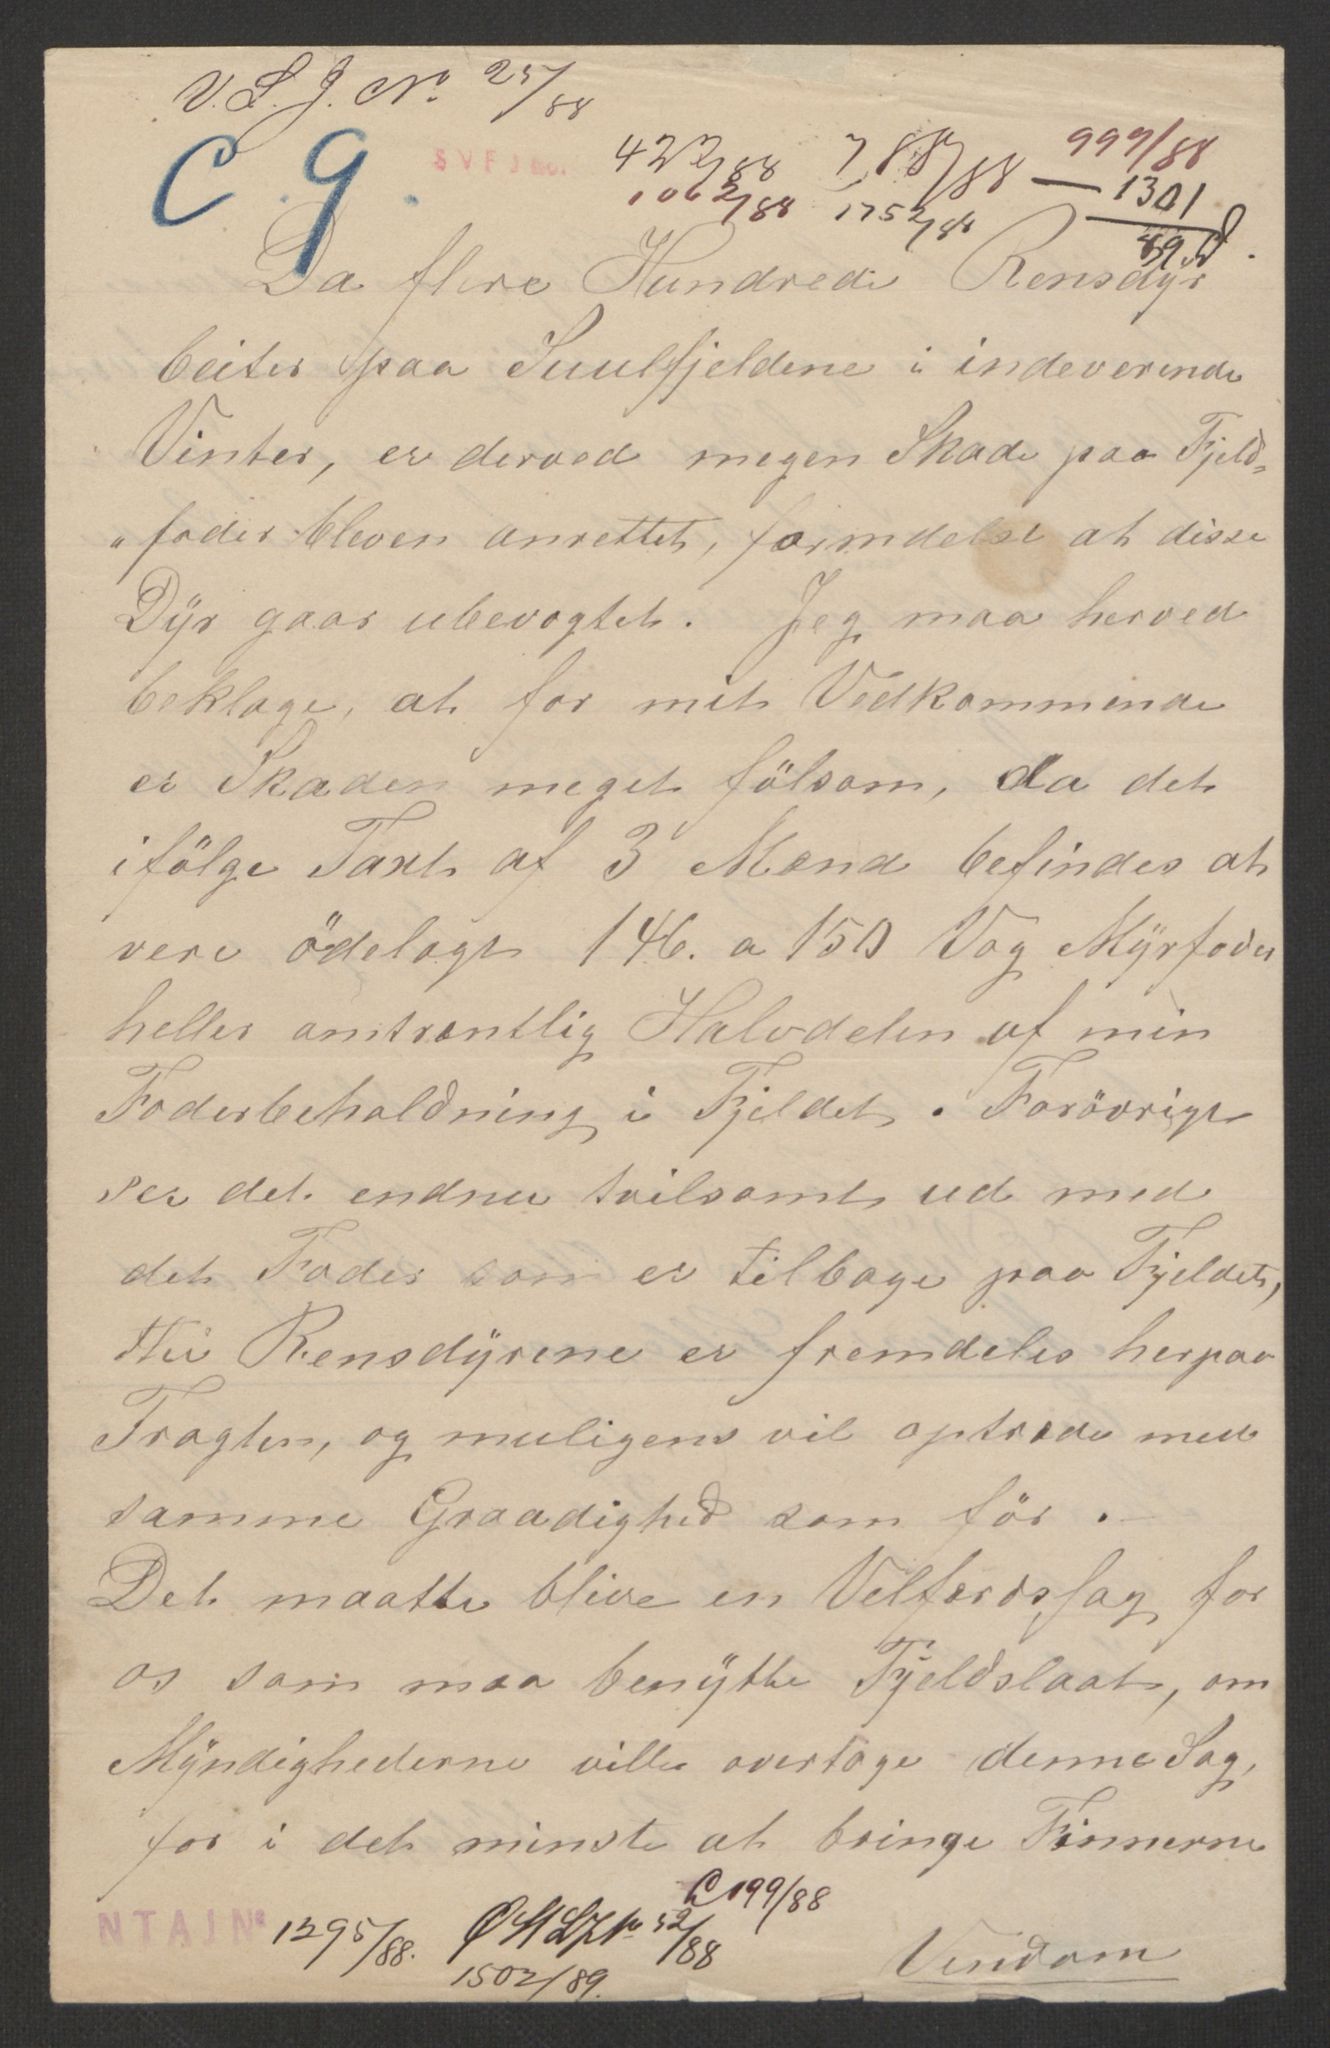 V. L. J. No. 25/88
C. 9.
S V F J No.
422/88 788/88 — 999/88
1062/88 1752/88 1301
89
Da flere Hundrede Rensdÿr
beiter paa Suulfjeldene i indeverende
Vinter, er derved megen Skade paa Fjeld-
„foder bleven anrettet, formdelst at disse
Dÿr gaar ubevogtet. Jeg maa herved
beklage, at for mit Vedkommende
er Skaden meget fölsom, da det
ifölge Taxt af 3 Mænd befindes at
vere ödelagt 146. a 150 Vog Mÿrfoder
heller omtrentlig Halvdelen af min
Foderbeholdning i Fjeldet. Forövrigt
ser det endnu tvilsomt ud med
det Foder som er tilbage paa Fjeldet,
thi Rensdÿrene er fremdeles herpaa
Tragten, og muligens vil optræde med
samme Graadighed som för.
Det maatte blive en Velferdssag for
os som maa benÿtte Fjeldslaat, om
Mÿndighederne ville overtage denne Sag,
for i det minste at bringe Finnerne
N T A J No 1295/88. Ø St L J No 52/88 C 199/88
1502/89.
Vendom